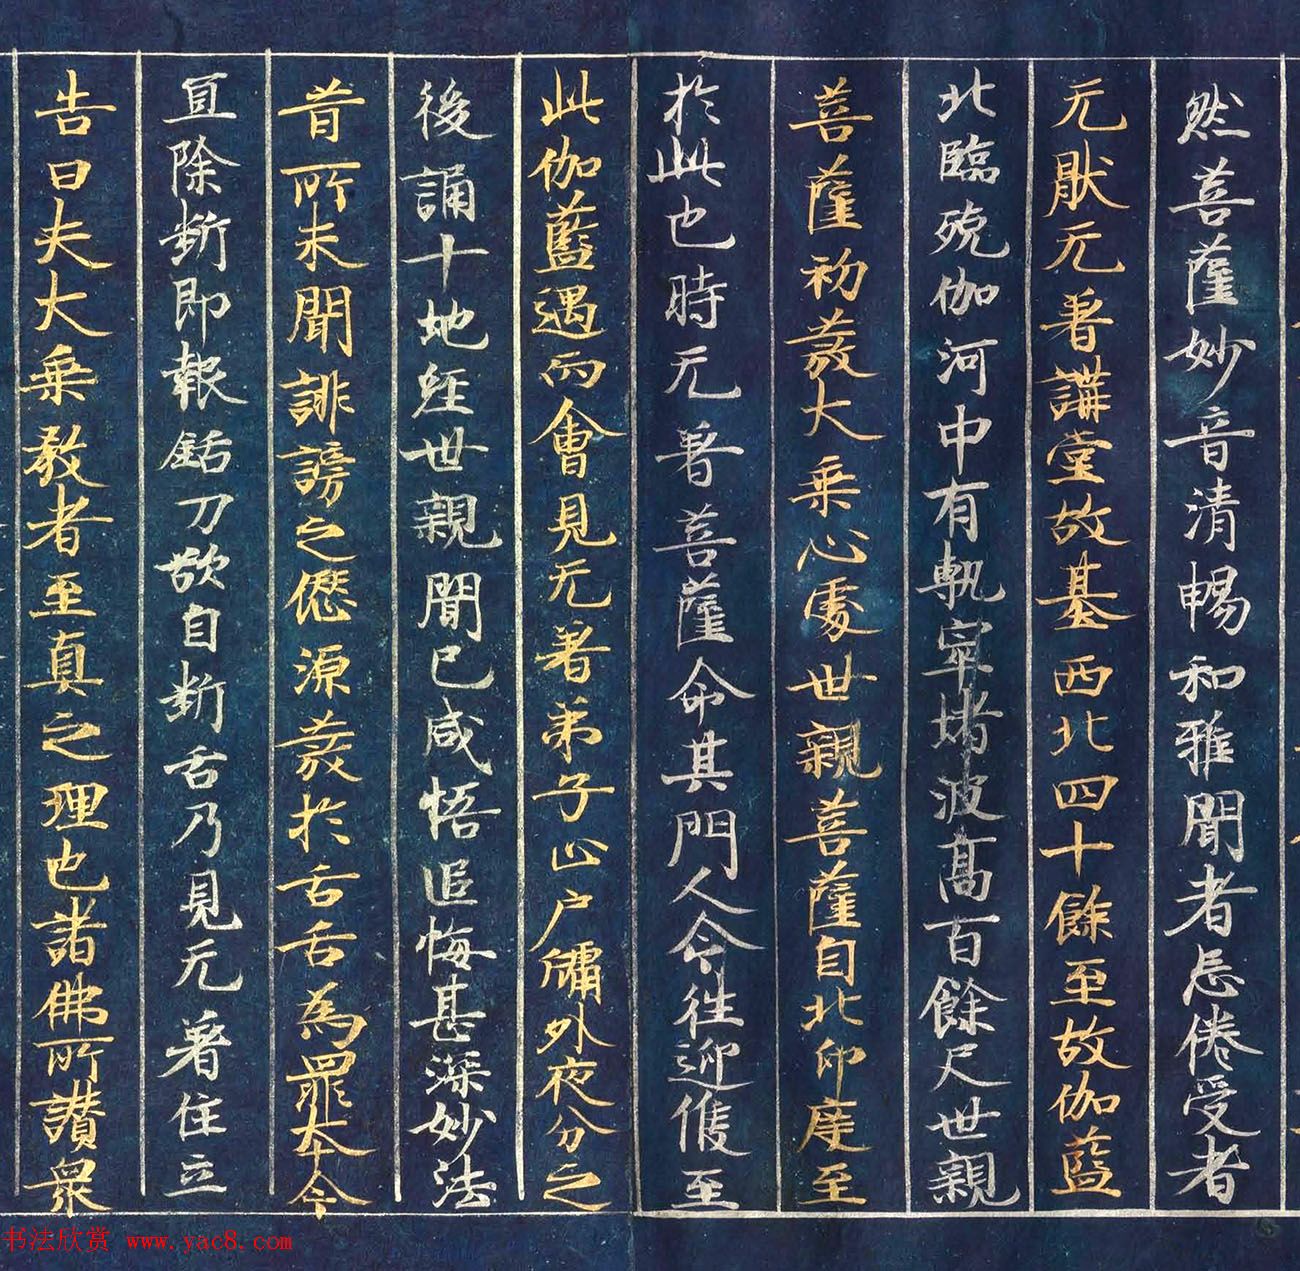 然菩薩妙音清暢和雅聞者忘倦受者
无猒无著講堂故基西北四十餘至故伽藍
北臨殑伽河中有甎窣堵波髙百餘尺世親
菩薩初發大乗心處世親菩薩自北印度至
於此也時无著菩薩命其門人令往迎候至
此伽藍遇而會見无著弟子止户牖外夜分之
後誦十地經世親聞已咸悟追悔甚深妙法
昔所未聞誹謗之愆源發於舌舌為罪夲今
宜除斷即報銛刀欲自斷舌乃見无著住立
告曰夫大乗教者至真之理也諸佛所讃衆
书法欣赏 www.yac8.com